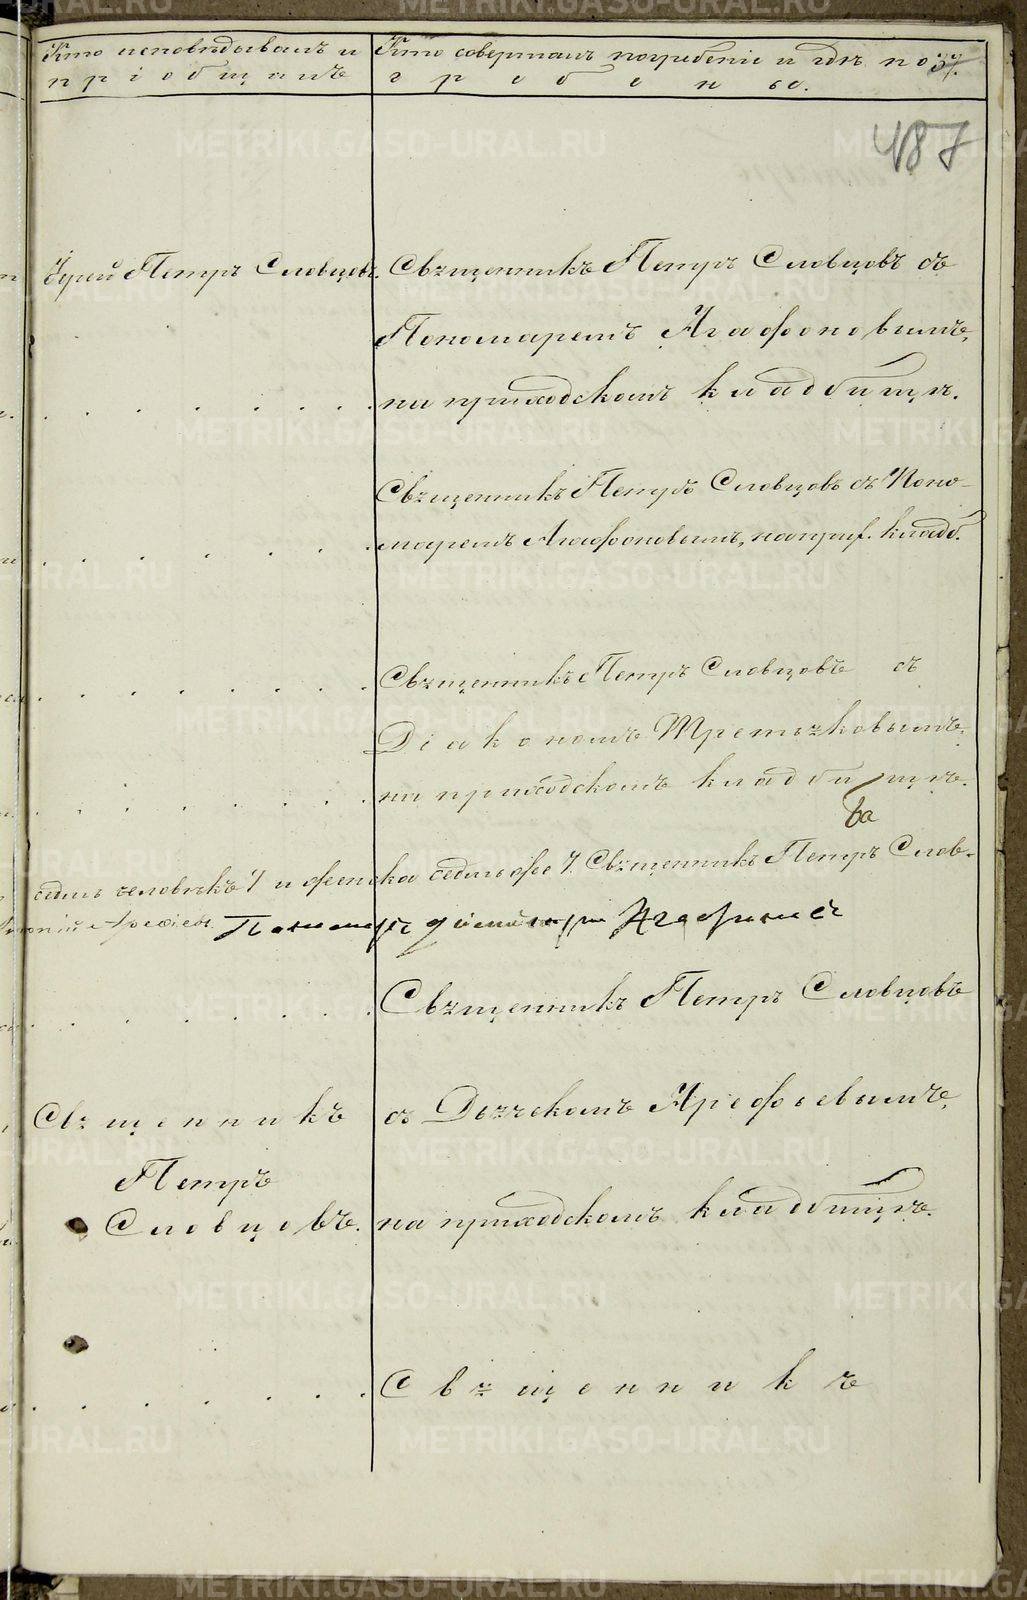 Кто исповѣдывалъ и
пріобщалъ
Кто совершалъ погребеніе и гдѣ по-
гребены.
37.
487
Іерей Петръ Словцовъ.
Священникъ Петръ Словцовъ съ
Пономаремъ Агафоновымъ,
на приходскомъ кладбищѣ.
Священникъ Петръ Словцовъ съ Поно-
маремъ Агафоновымъ, на прих. кладб.
Священникъ Петръ Словцовъ съ
Діакономъ Третьяковымъ,
на приходскомъ кладбищѣ.
седмь человѣкъ 7 и женска седмь же 7. Священникъ Петръ Слов-
Арефіевъ. Пономарь Агафоновъ
Священникъ Петръ Словцовъ
Священникъ
Петръ
Словцовъ.
съ Дьячкомъ Арефьевымъ,
на приходскомъ кладбищѣ.
Священникъ
METRIKI.GASO-URAL.RU